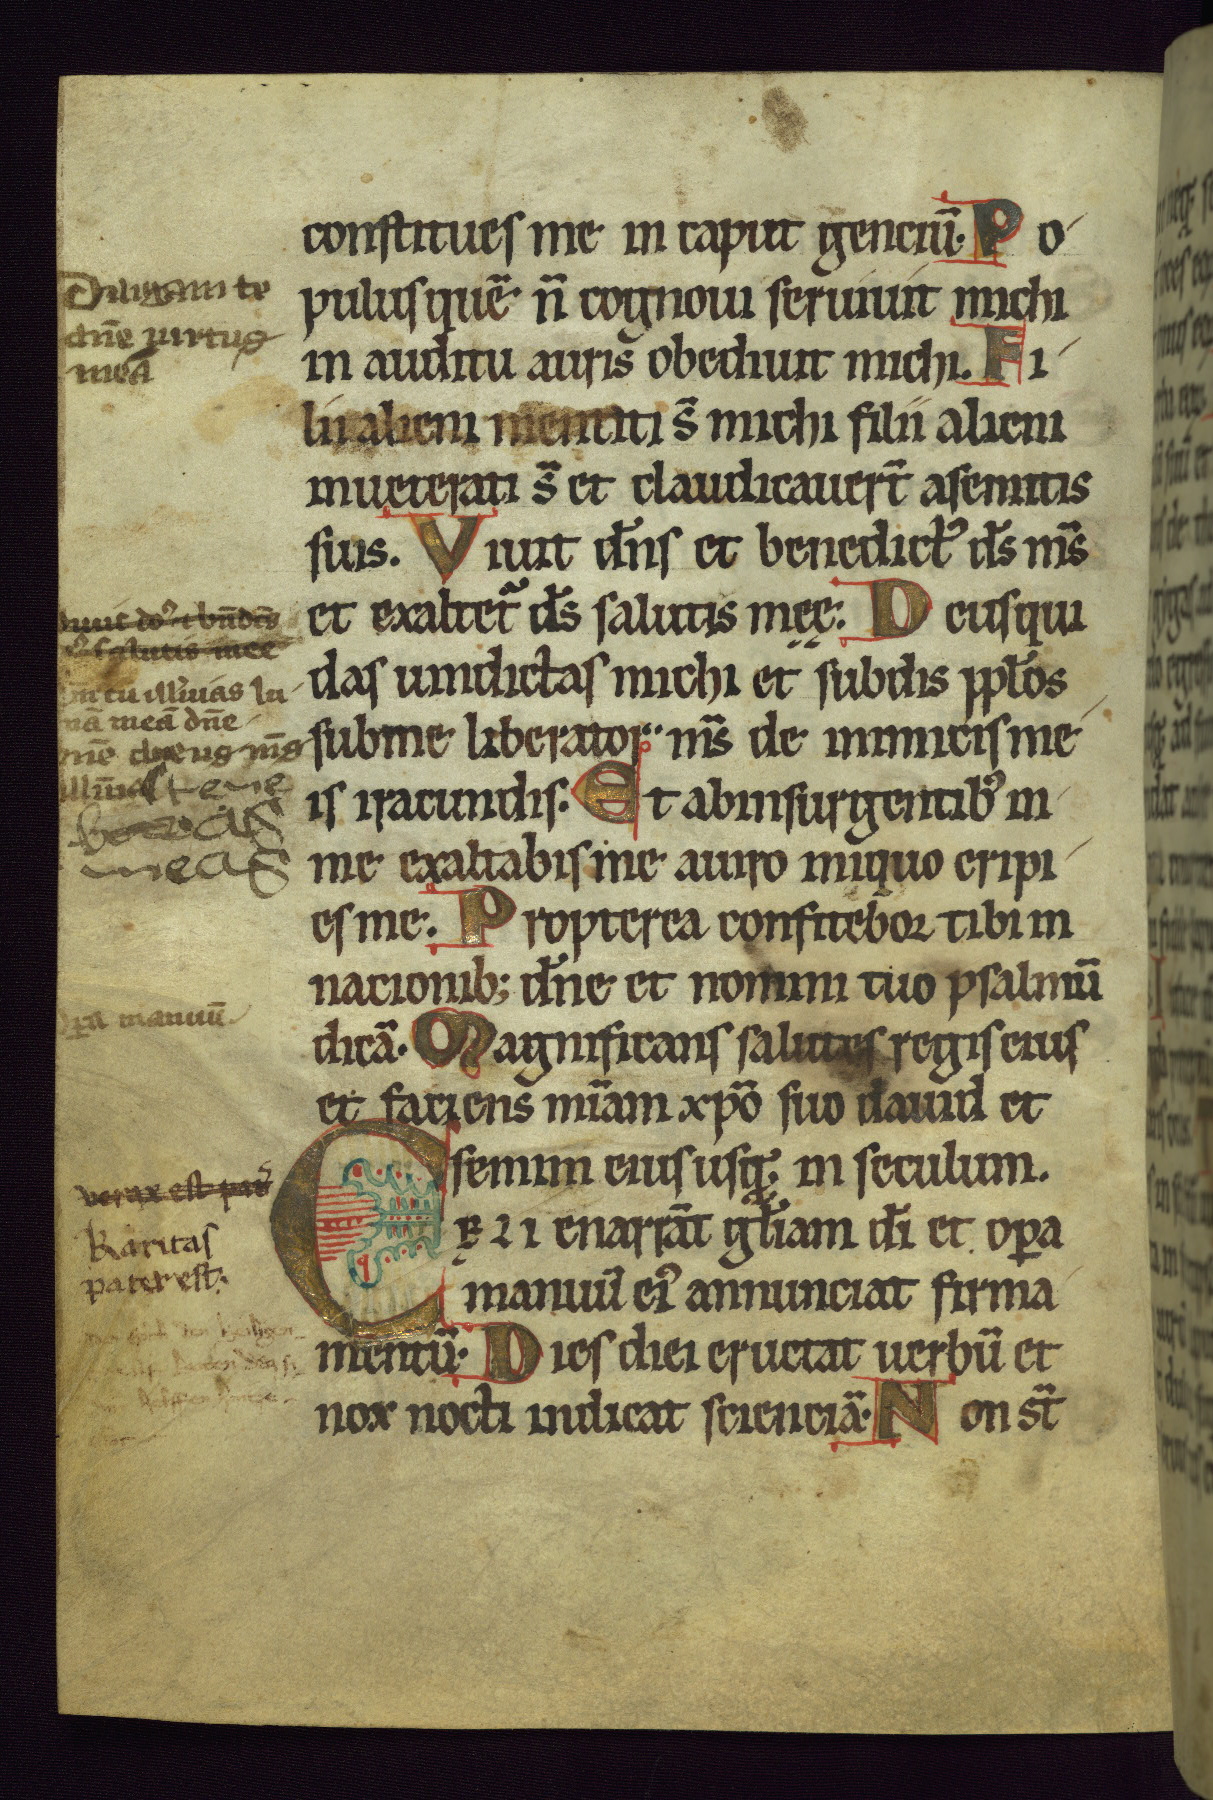 constitues me in caput genciū. P o
pulus quē n̄ cognoui seruiuit michi
in auditu auris obediuit michi. F i
lii alieni mentiti s̄ michi filii alieni
inueterati s̄ et claudicauer̄t asemitis
suis. V iuit dn̄s et benedict᾽ ds̄ ms̄
et exaltet᷑ ds̄ salutis męę. D eus qui
das uindictas michi et subdis ppl̄os
sub me liberator ms̄ de inimicis me
is iracundis. E t ab insurgentib᾽ in
me exaltabis me auiro iniquo eripi
es me. P ropterea confitebor tibi in
nacionib; dn̄e et nomini tuo psalmū
dicā. M agnificans salutes regis eius
et faciens mīam xp̄o suo dauid et
semini eius usq; in seculum.
C ęli enarrāt gl̄iam dī et oꝑa
manuū ei᾽ annunciat firma
mentū. D ies diei eructat uerbū et
nox nocti indicat scienciā. N on st̄
Diligam te
dn̄e uirtus
meā
salutis mee
lu
nā meā dn̄e
ms̄
meas
oꝑa manuū
verax est pat̄
Karitas
pater est.